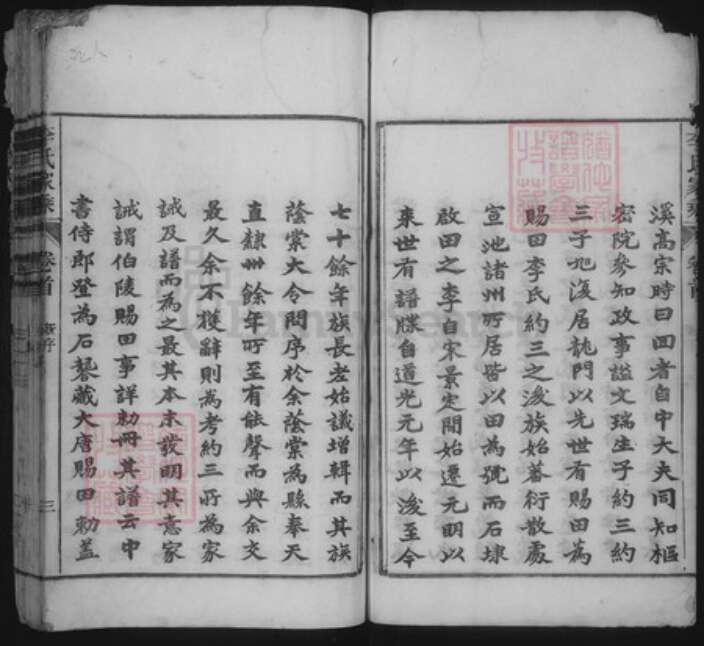 溪高宗時曰回者自中大夫同知樞
密院參知政事謚文瑞生子約三約
三子夗復居龍門以先世有賜田為
賜田李氏約三之後族始蕃衍散處
宣池諸州所居皆以田為號而石埭
啟田之李自宋景定間始遷元明以
來世有譜牒自道光元年以後至今
七十餘年族長老始議增輯而其族
蔭棠大令問序於余蔭棠為縣奉天
直隸卅餘年所至有能聲而與余交
最久余不獲辭則為考約三所為家
誡及譜而為之最其本末發明其意家
誡謂伯陵賜田事詳勅冊其譜云中
書侍郎登為石磬藏大唐賜田勅蓋
李氏家乘
卷首
三